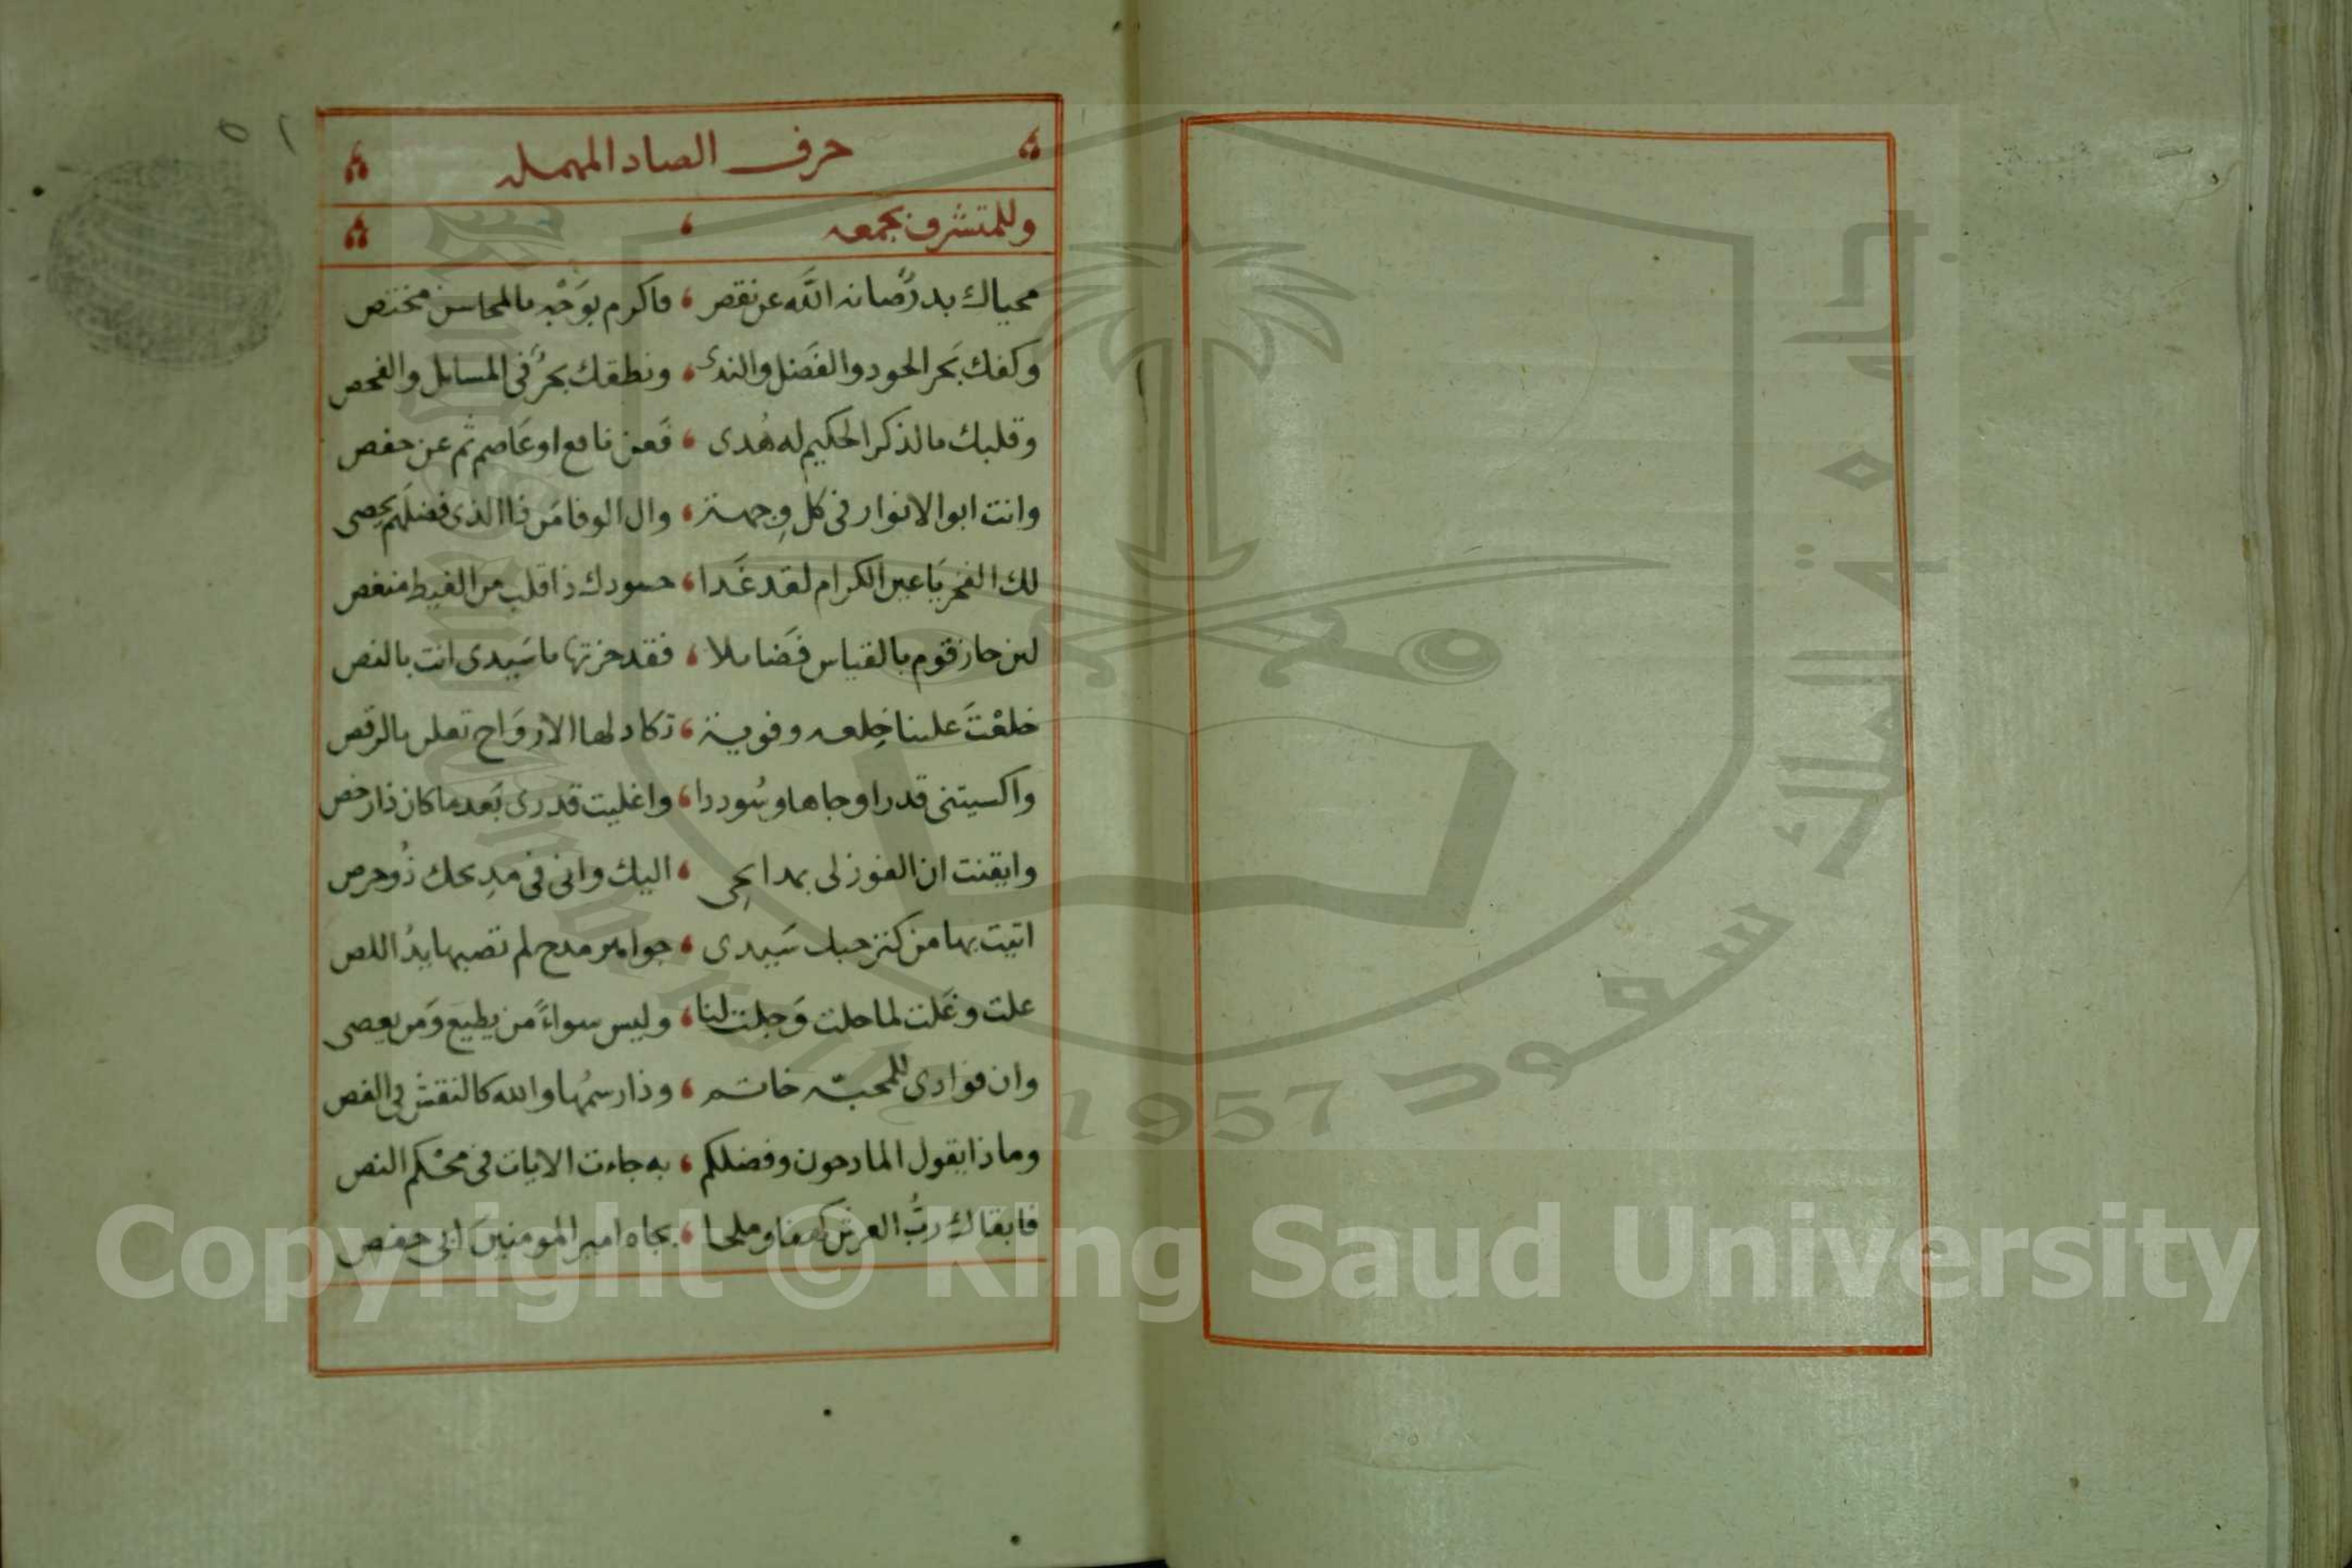 حرف الصاد المهمله
وللمتشرف بجمعه
محياك بدرٌ صانه اللَّه عن نقص ، فاكرم بوَجْهٍ بالمحاسن مختص
وكفك بَحر الجود والفَضل والندى ، ونطقك بحرٌ فى المسايل والفحص
وقلبك بالذكر الحكيم له هُدى ، فَعن نافع او عَاصم ثم عن حفص
وانت ابو الانوار فى كل وِجهة ، وال الوفا مَن ذا الذى فضلَهم يحصى
لك الفخر يَا عين الكرام لقد غَدا ، حسودك ذا قلب من الغيظ منغص
لين حاز قوم بالقياس فَضايلا ، فقد حزتها يا سَيدى انت بالنص
خلعْتَ علينا خِلعه وفوية ، تكاد لها الارْوَاح تعلن بالرقص
واكسيتنى قدرا وجاها وسُوددا ، واغليت قدرى بَعد ما كان ذا رخص
وايقنت ان الفوز لى بمدايحِى ، اليك وانى فى مَدِيحك ذُو حرص
اتيت بها من كنز حبك سَيدى ، جواهر مدح لم تصبها يدُ اللص
علت وغَلت لما حلت وَجلت لنا ، وليس سواءً من يطيع وَمن يعصى
وان فوادى للمحبّه خاتم ، وذا رسمُها والله كالنقش فى الفص
وماذا يقول المادحون وفضلكم ، به جاءت الايات فى محْكم النص
فابقاك ربُّ العرش كهفا وملجا ، بجاه امير المومنين ابى حفص
٥١
King Saud University
1957
جامعة الملك سعود
Copyright © King Saud University